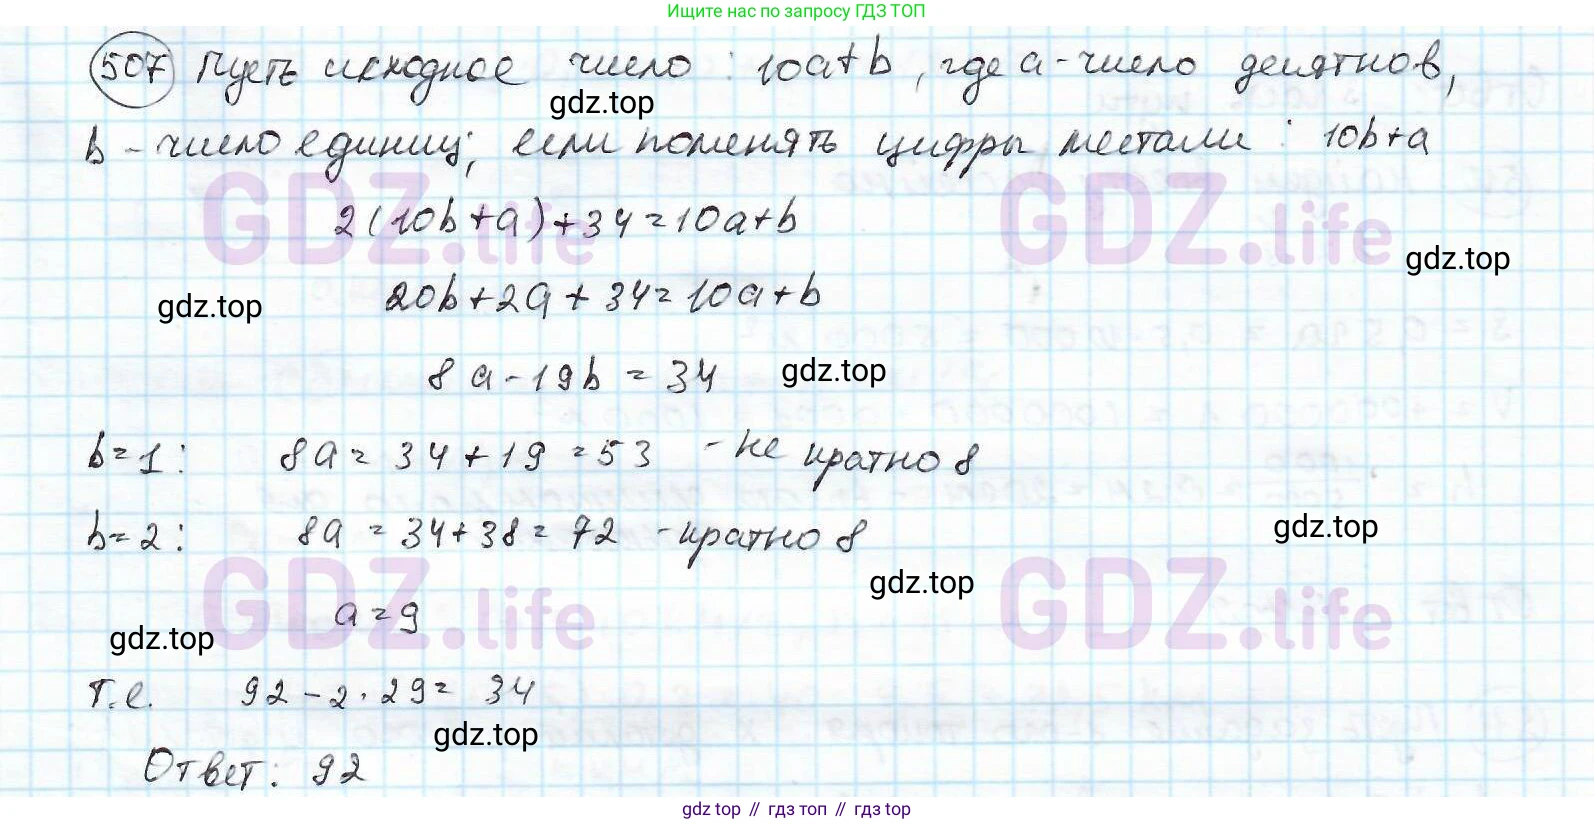 Ищите нас по запросу ГДЗ ТОП
507 Пусть исходное число : 10a+b, где a - число десятков,
gdz.top
b - число единиц, если поменять цифры местами : 10b+a
GDZ.life GDZ.life
2(10b+a)+34=10a+b
gdz.top
20b+2a+34=10a+b
gdz.top
8a-19b=34
gdz.top
b=1: 8a=34+19=53 - не кратно 8
b=2: 8a=34+38=72 - кратно 8
gdz.top
GDZ.life GDZ.life
gdz.top
a=9
gdz.top
т.е. 92-2·29=34
gdz.top
Ответ: 92
gdz top // гдз топ // gdz top